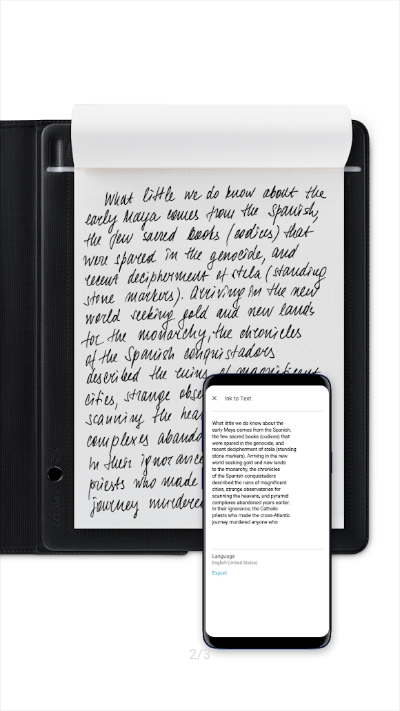 What little we do know about the
early Maya comes from the Spanish,
the few sacred books (codices) that
were spared in the genocide, and
recent decipherment of stela (standing
stone markers). Arriving in the new
world seeking gold and new lands
for the monarchy, the chronicles
of the Spanish conquistadors
described the ruins of magnificent
cities, strange obse
scanning the hea
complexes abando
In their ignorance
priests who made
journey murdered
Ink to Text
What little we do know about the
early Maya comes from the Spanish,
the few sacred books (codices) that
were spared in the genocide, and
recent decipherment of stela (standing
stone markers). Arriving in the new
world seeking gold and new lands
for the monarchy, the chronicles
of the Spanish conquistadors
described the ruins of magnificent
cities, strange observatories for
scanning the heavens, and pyramid
complexes abandoned years earlier.
In their ignorance, the Catholic
priests who made the cross-Atlantic
journey murdered anyone who
Language
English (United States)
Export
2/3